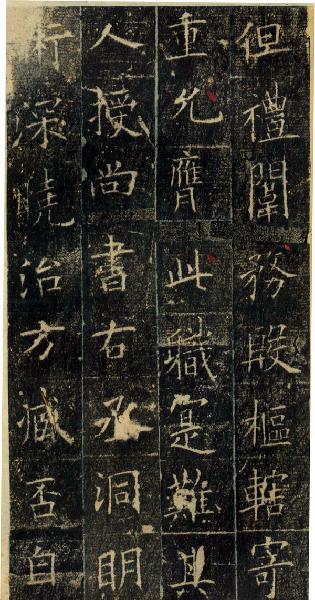 但禮闈務殷樞轄寄
重允膺此職寔難其
人授尚書右丞洞明
行深曉治方臧否自